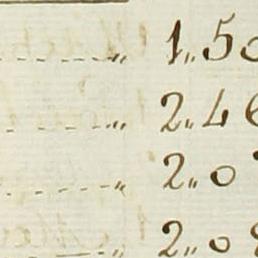 " 1 " 50
" 2 " 46
" 2 " 0
" 2 " 0